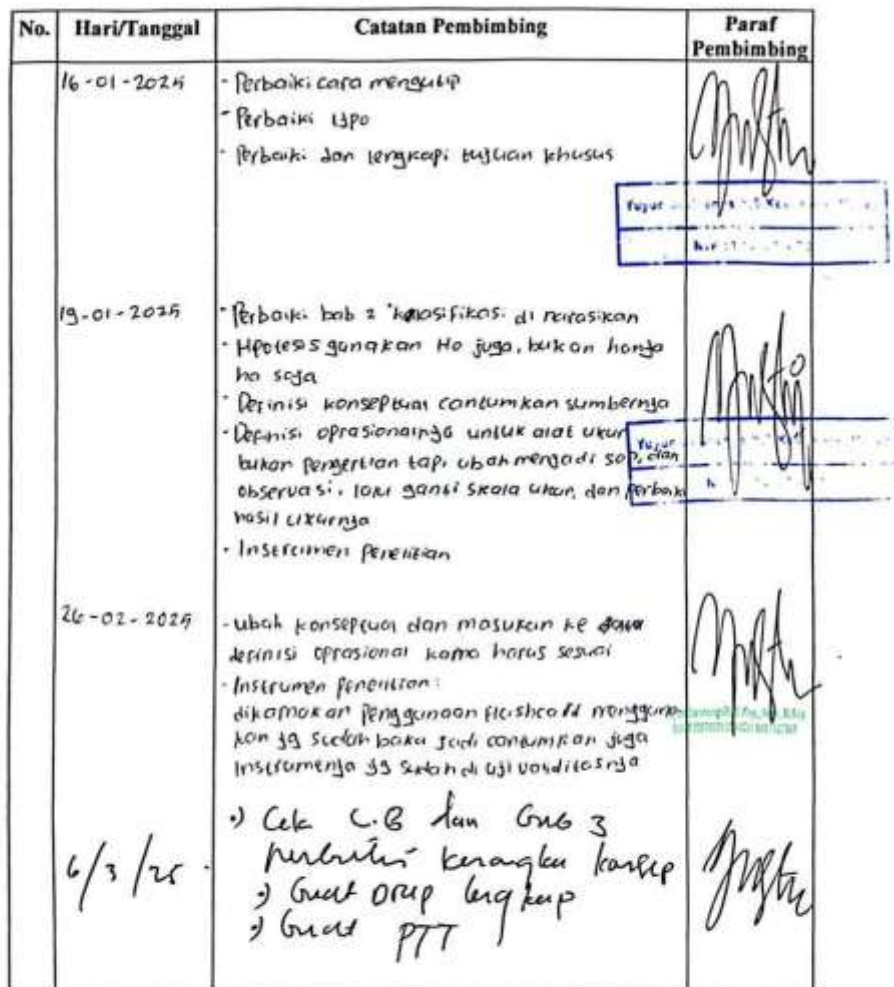 No. Hari/Tanggal Catatan Pembimbing Paraf
Pembimbing
16-01-2025 - Perbaiki cara mengutip
- Perbaiki typo
- Perbaiki dan lengkapi tujuan khusus
19-01-2025 - Perbaiki bab 2 klasifikasi di narasikan
- Hipotesis gunakan Ho juga, bukan hanya
ha saja
- Definisi konseptual cantumkan sumbernya
- Definisi oprasionalnya untuk alat ukur
bukan pengertian tapi ubah menjadi sop, dan
observasi, lalu ganti skala ukur, dan perbaiki
hasil ukurnya
- Instrumen penelitian
26-02-2025 - Ubah konseptual dan masukan ke
definisi oprasional harus sesuai
- Instrumen penelitian:
penggunaan flashcard mengguna
kan yg sudah baku jadi cantumkan juga
Instrumennya yg sudah di uji validitasnya
6/3/25 •) Cek dan 3
kerangka konsep
•) lengkap
•) PTT